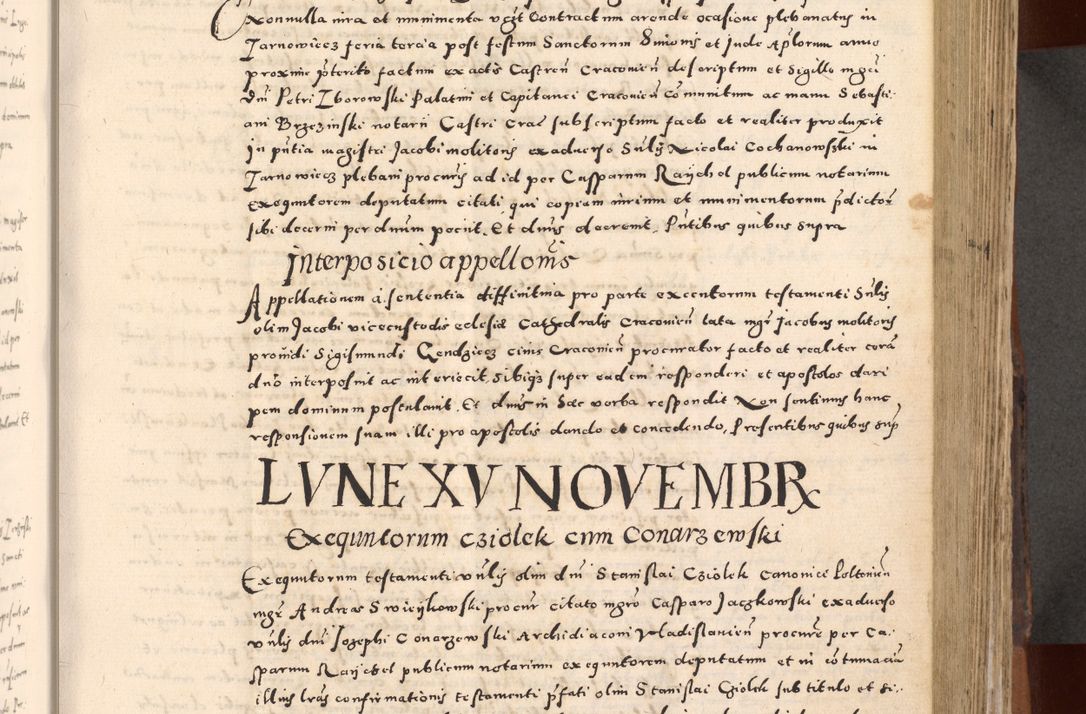 nonnulla iura et munimenta vʒit Contractum arende ocasione plebanatus in
Tarnowiecz feria tercia post festum Sanctorum Simonis et Jude Aplorum anno
proxime pterito factum ex actis Castren Cracovien descriptum et Sigillo mgci
dni Petri Zborowski Palatini et Capitanei Cracovien Comunitum ac manu Sebasti-
ani Brzezinski notarii Castri Crac subscriptum facto et realiter produxit
in pntia magistri Jacobi molitoris ex aduerso Vnlis Nicolai Cochanowszki in
Tarnowiecz plebani procuris ad id per Casparum Raychel publicum notarium
exequutorem deputatum citati, qui copiam iurium et munimentorum pdictor
sibi decerni per dnum peciit. Et dnus decrevit. Pntibus quibus supra
Interposicio appellonis
Appellationem a sententia diffinitiua pro parte executorum testamenti Vnlis
olim Jacobi vicecustodis eclesie Cathedralis Cracovien lata mgr Jacobus molitoris
prouidi Sigismundi Gendziecz ciuis Cracovien procurator facto et realiter cora
dno interposuit ac interiecit, sibiqz super eadem responderi et apostolos dari
pem dominum postulauit. Et dnus in hec verba respondit Non sentimus hanc
responsionem suam illi pro apostolis dando et concedendo, Presentibus quibus sup
LVNE XV NOVEMBR
Exequutorum Cziolek cum Conarzewski
Exequutorum testamenti vnlis olim dni Stanislai Cziolek Canonici Poltovien
mgr Andreas Swieykowski procur citato mgro Casparo Jaczkowski ex aduerso
vnlis dni Jozephi Conarzewski Archidiaconi Vladislauien procure per Ca-
sparum Raychel publicum notarium exequutorem deputatum et in cotumacia
illius lras confirmationis testamenti pfati olim Stanislai Cziolek sub titulo et si-